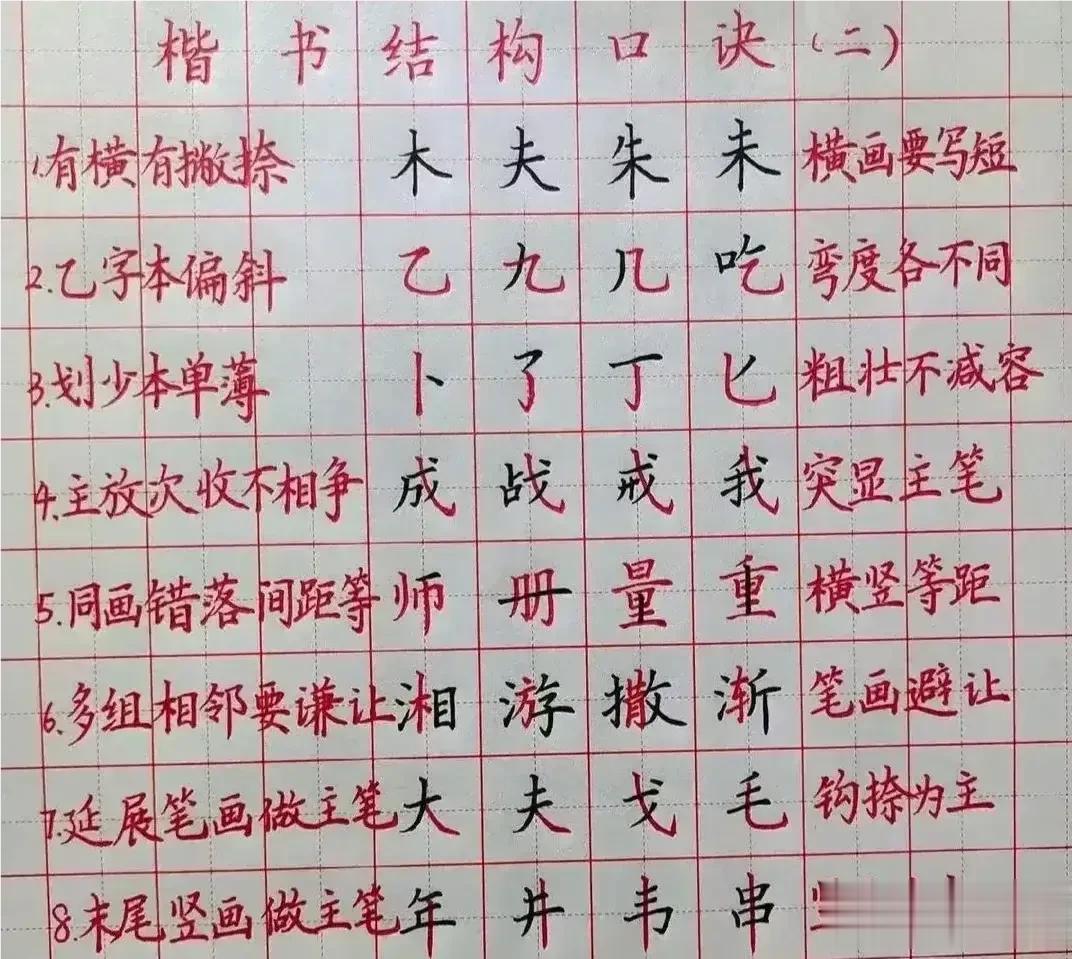 楷书结构口诀(二)
1.有横有撇捺 木 夫 朱 未 横画要写短
2.乙字本偏斜 乙 九 几 吃 弯度各不同
3.划少本单薄 卜 了 丁 匕 粗壮不减容
4.主放次收不相争 成 战 戒 我 突显主笔
5.同画错落间距等 师 册 量 重 横竖等距
6.多组相邻要谦让 湘 游 撒 渐 笔画避让
7.延展笔画做主笔 大 夫 戈 毛 钩捺为主
8.末尾竖画做主笔 年 井 韦 串